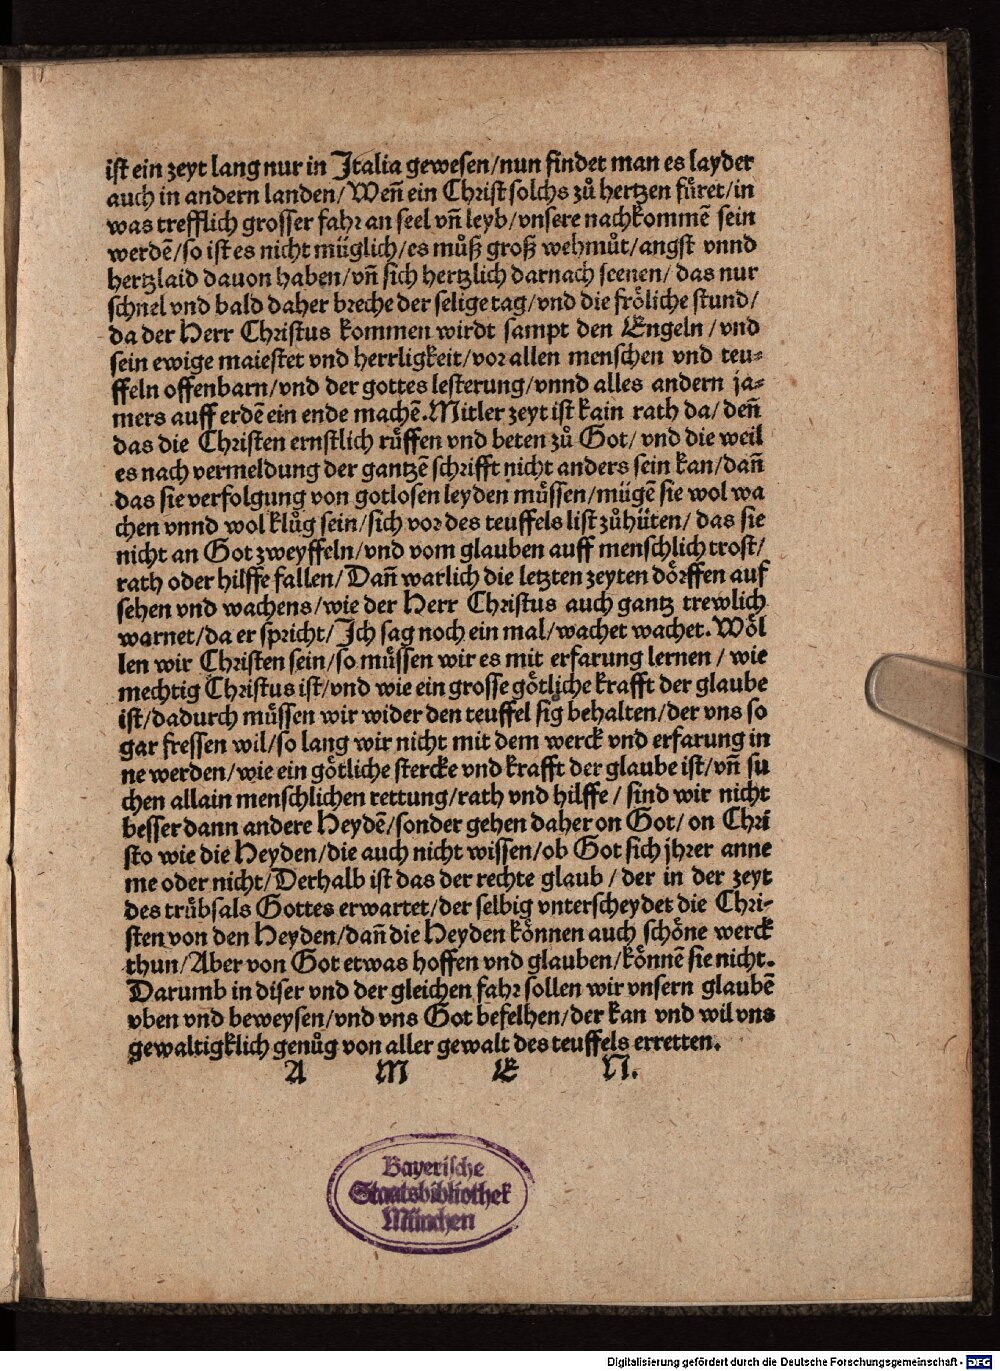 ist ein zeyt lang nur in Italia gewesen/nun findet man es layder
auch in andern landen/ Weñ ein Christ solchs zů hertzen füret/in
was trefflich grosser fahr an seel vñ leyb/vnsere nachkommē sein
werdē/so ist es nicht müglich/es můß groß wehmůt/angst vnnd
hertzlaid dauon haben/vñ sich hertzlich darnach seenen/ das nur
schnel vnd bald daher breche der selige tag/vnd die fröliche stund/
da der Herr Christus kommen wirdt sampt den Engeln/vnd
sein ewige maiestet vnd herrligkeit/vor allen menschen vnd teu⸗
ffeln offenbarn/vnd der gottes lesterung/vnnd alles andern ja⸗
mers auff erdē ein ende machē. Mitler zeyt ist kain rath da/ deñ
das die Christen ernstlich růffen vnd beten zů Got/ vnd die weil
es nach vermeldung der gantzē schrifft nicht anders sein kan/dañ
das sie verfolgung von gotlosen leyden müssen/mügē sie wol wa
chen vnnd wol klůg sein/sich vor des teuffels list zůhüten/ das sie
nicht an Got zweyffeln/vnd vom glauben auff menschlich trost/
rath oder hilffe fallen/ Dañ warlich die letzten zeyten dörffen auf
sehen vnd wachens/wie der Herr Christus auch gantz trewlich
warnet/da er spricht/Ich sag noch ein mal/wachet wachet. Wöl
len wir Christen sein/so müssen wir es mit erfarung lernen / wie
mechtig Christus ist/vnd wie ein grosse götliche krafft der glaube
ist/dadurch müssen wir wider den teuffel sig behalten/der vns so
gar fressen wil/so lang wir nicht mit dem werck vnd erfarung in
ne werden/wie ein götliche stercke vnd krafft der glaube ist/vñ su
chen allain menschlichen rettung/rath vnd hilffe / sind wir nicht
besser dann andere Heydē/sonder gehen daher on Got/ on Chri
sto wie die Heyden/die auch nicht wissen/ob Got sich jhrer anne
me oder nicht/Derhalb ist das der rechte glaub / der in der zeyt
des trübsals Gottes erwartet/der selbig vnterscheydet die Chri-
sten von den Heyden/dañ die Heyden können auch schöne werck
thun/Aber von Got etwas hoffen vnd glauben/könnē sie nicht.
Darumb in diser vnd der gleichen fahr sollen wir vnsern glaubē
vben vnd beweysen/vnd vns Got befelhen/der kan vnd wil vns
gewaltigklich genůg von aller gewalt des teuffels erretten.
A M E N.
Bayerische
Staatsbibliothek
München
Digitalisierung gefördert durch die Deutsche Forschungsgemeinschaft - DFG